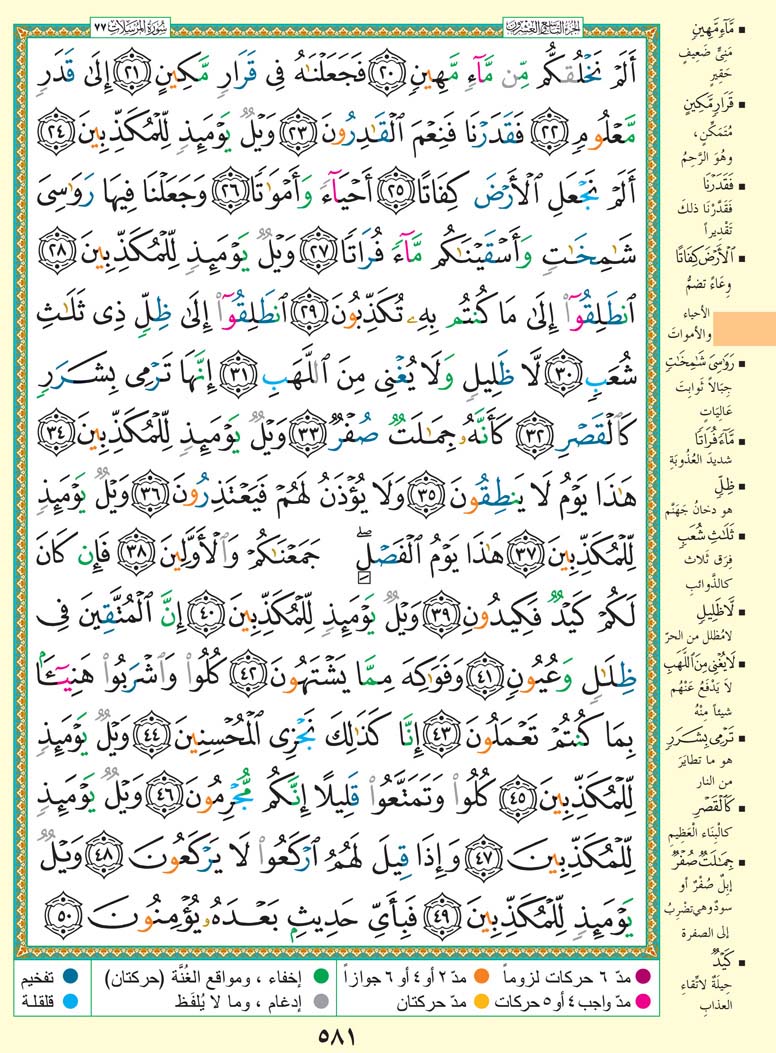 سُورَةُ المُرْسَلَات ٧٧
الجزء التاسع والعشرون
أَلَمْ نَخْلُقكُّم مِّن مَّآءٍ مَّهِينٍ ٢٠ فَجَعَلْنَٰهُ فِى قَرَارٍ مَّكِينٍ ٢١ إِلَىٰ قَدَرٍ
مَّعْلُومٍ ٢٢ فَقَدَرْنَا فَنِعْمَ ٱلْقَٰدِرُونَ ٢٣ وَيْلٌ يَوْمَئِذٍ لِّلْمُكَذِّبِينَ ٢٤
أَلَمْ نَجْعَلِ ٱلْأَرْضَ كِفَاتًا ٢٥ أَحْيَآءً وَأَمْوَٰتًا ٢٦ وَجَعَلْنَا فِيهَا رَوَٰسِىَ
شَٰمِخَٰتٍ وَأَسْقَيْنَٰكُم مَّآءً فُرَاتًا ٢٧ وَيْلٌ يَوْمَئِذٍ لِّلْمُكَذِّبِينَ ٢٨
ٱنطَلِقُوٓا۟ إِلَىٰ مَا كُنتُم بِهِۦ تُكَذِّبُونَ ٢٩ ٱنطَلِقُوٓا۟ إِلَىٰ ظِلٍّ ذِى ثَلَٰثِ
شُعَبٍ ٣٠ لَّا ظَلِيلٍ وَلَا يُغْنِى مِنَ ٱللَّهَبِ ٣١ إِنَّهَا تَرْمِى بِشَرَرٍ
كَٱلْقَصْرِ ٣٢ كَأَنَّهُۥ جِمَٰلَتٌ صُفْرٌ ٣٣ وَيْلٌ يَوْمَئِذٍ لِّلْمُكَذِّبِينَ ٣٤
هَٰذَا يَوْمُ لَا يَنطِقُونَ ٣٥ وَلَا يُؤْذَنُ لَهُمْ فَيَعْتَذِرُونَ ٣٦ وَيْلٌ يَوْمَئِذٍ
لِّلْمُكَذِّبِينَ ٣٧ هَٰذَا يَوْمُ ٱلْفَصْلِ ۖ جَمَعْنَٰكُمْ وَٱلْأَوَّلِينَ ٣٨ فَإِن كَانَ
لَكُمْ كَيْدٌ فَكِيدُونِ ٣٩ وَيْلٌ يَوْمَئِذٍ لِّلْمُكَذِّبِينَ ٤٠ إِنَّ ٱلْمُتَّقِينَ فِى
ظِلَٰلٍ وَعُيُونٍ ٤١ وَفَوَٰكِهَ مِمَّا يَشْتَهُونَ ٤٢ كُلُوا۟ وَٱشْرَبُوا۟ هَنِيٓـًٔۢا
بِمَا كُنتُمْ تَعْمَلُونَ ٤٣ إِنَّا كَذَٰلِكَ نَجْزِى ٱلْمُحْسِنِينَ ٤٤ وَيْلٌ يَوْمَئِذٍ
لِّلْمُكَذِّبِينَ ٤٥ كُلُوا۟ وَتَمَتَّعُوا۟ قَلِيلًا إِنَّكُم مُّجْرِمُونَ ٤٦ وَيْلٌ يَوْمَئِذٍ
لِّلْمُكَذِّبِينَ ٤٧ وَإِذَا قِيلَ لَهُمُ ٱرْكَعُوا۟ لَا يَرْكَعُونَ ٤٨ وَيْلٌ
يَوْمَئِذٍ لِّلْمُكَذِّبِينَ ٤٩ فَبِأَىِّ حَدِيثٍۭ بَعْدَهُۥ يُؤْمِنُونَ ٥٠
مَّآءٍ مَّهِينٍ
مَنِيٍّ ضَعِيفٍ
حَقيرٍ
قَرَارٍ مَّكِينٍ
مُتَمَكِّنٍ،
وهُوَ الرَّحِمُ
فَقَدَرْنَا
فَقَدَّرْنَا ذلكَ
تَقْدِيراً
ٱلْأَرْضَ كِفَاتًا
وِعَاءً تضمُّ
الأحياء
والأموات
رَوَٰسِىَ شَٰمِخَٰتٍ
جِبَالاً ثَوابتَ
عَالِيَاتٍ
مَّآءً فُرَاتًا
شديدَ العُذُوبَةِ
ظِلٍّ
هو دخانُ جَهنَّم
ثَلَٰثِ شُعَبٍ
فِرَقٍ ثَلاث
كالذَّوائبِ
لَّا ظَلِيلٍ
لا مُظلل من الحرّ
لَا يُغْنِى مِنَ ٱللَّهَبِ
لا يَدْفَعُ عَنْهُم
شيئاً مِنْهُ
تَرْمِى بِشَرَرٍ
هو ما تطايَرَ
من النار
كَٱلْقَصْرِ
كالْبِنَاءِ الْعَظِيمِ
جِمَٰلَتٌ صُفْرٌ
إبلٌ صُفْرٌ أو
سودٌ وهي تضْرِبُ
إلى الصفرة
كَيْدٌ
حِيلَةٌ لاتِّقاءِ
العذابِ
مدّ ٦ حركات لزوماً
مدّ ٢ أو ٤ أو ٦ جوازاً
إخفاء ، ومواقع الغُنَّة (حركتان)
تفخيم
مدّ واجب ٤ أو ٥ حركات
مدّ حركتان
إدغام ، وما لا يُلفَظ
قلقلة
٥٨١